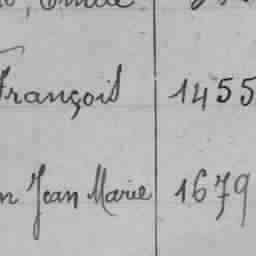 François 1455
Jean Marie 1679